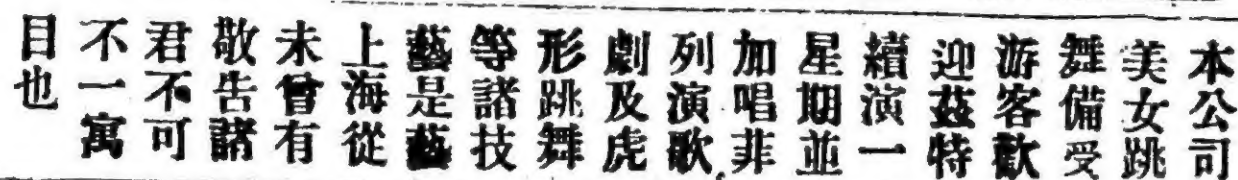 本公司
美女跳
舞備受
游客歡
迎茲特
續演一
星期並
加唱菲
列演歌
劇及虎
形跳舞
等諸技
藝是藝
上海從
未曾有
敬告諸
君不可
不一寓
目也